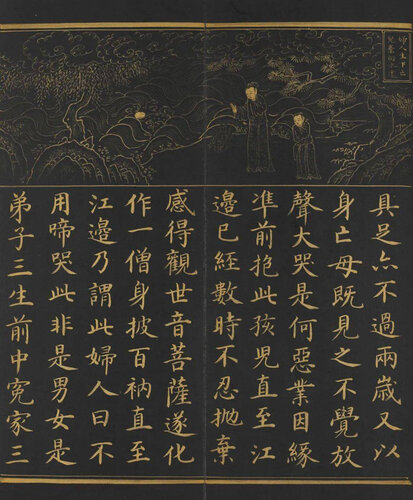 婦人生下
具足亦不過兩歲又以
身亡母既見之不覺放
聲大哭是何惡業因緣
準前抱此孩兒直至江
邊已經數時不忍抛棄
感得觀世音菩薩遂化
作一僧身披百衲直至
江邊乃謂此婦人曰不
用啼哭此非是男女是
弟子三生前中寃家三